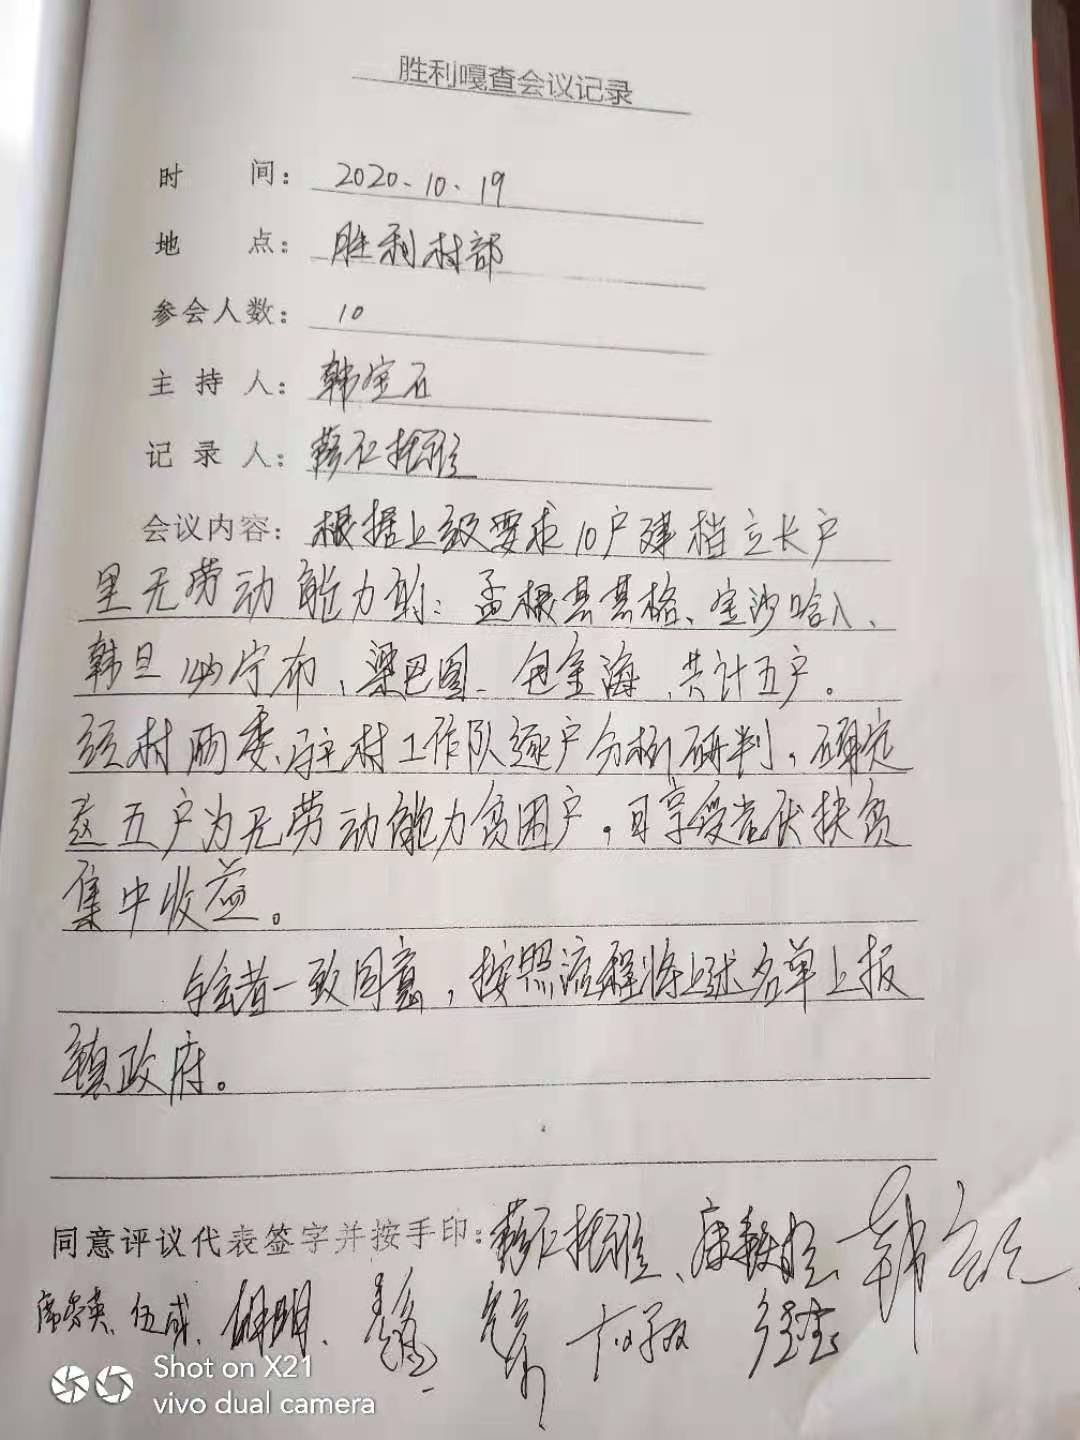 胜利嘎查会议记录
时 间: 2020.10.19
地 点: 胜利村部
参会人数: 10
主 持 人: 韩宝石
记 录 人:
会议内容: 根据上级要求10户建档立长户
里无劳动能力的: 孟根其其格、宝沙哈入、
韩旦 宁布、梁巴图、包金海、共计五户。
经村两委、驻村工作队逐户分析研判，确定
这五户为无劳动能力贫困户，可享受光伏扶贫
集中收益。
与会者一致同意，按照流程将上述名单上报
镇政府。
同意评议代表签字并按手印:
伍成、
Shot on X21
vivo dual camera